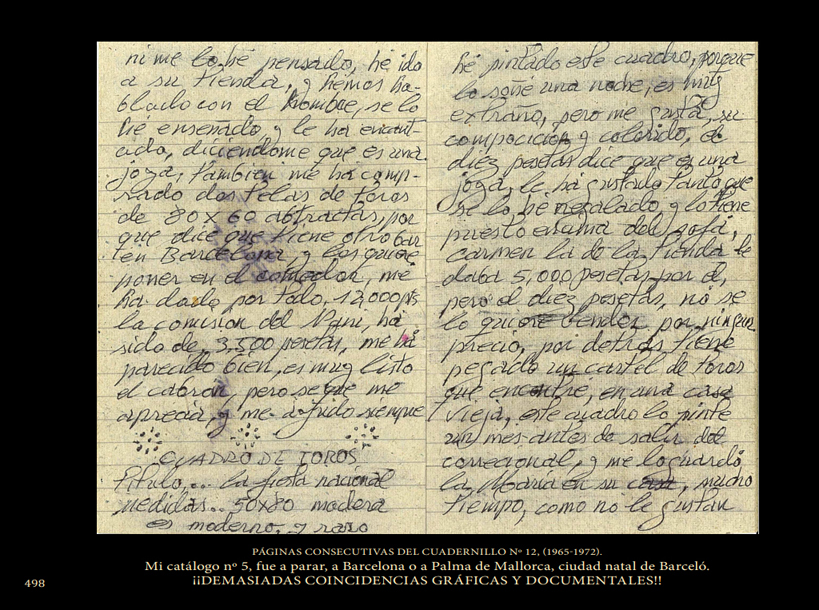 ni me lo hé pensado, hé ido
a su tienda, y hemos ha-
blado con el hombre, se lo
hé enseñado y le ha encant-
ado, diciendome que es una
joya, también me ha comp-
rado dos telas de toros
de 80 x 60 abtractas, por
que dice que tiene otro bar
en Barcelona, y los quiere
poner en el comedor, me
ha dado por todo, 12,000 pts
la comision del Nani, ha
sido de 3.500 pesetas, me ha
parecido bien, es muy listo
el cabron, pero se que me
aprecia, y me a siempre
CUADRO DE TOROS
Titulo... la fiesta nacional
medidas.. 50x80 madera
es moderno, y raro
hé pintado este cuadro, porque
lo soñe una noche, es muy
extraño, pero me gusta, su
composición y colorido, el
diez pesetas dice que es una
joya, le ha gustado tanto que
se lo he regalado y lo tiene
puesto encima del sofá,
carmen la de la tienda le
daba 5,000 pesetas por el,
pero el diez pesetas, no se
lo quiere vender, por ningun
precio, por detrás tiene
pegado un cartel de toros
que encontré, en una casa
vieja, este cuadro lo pinte
un mes antes de salir del
correcional, y me lo guardó,
la Maria en su casa, mucho
tiempo, como no le gustan
PÁGINAS CONSECUTIVAS DEL CUADERNILLO Nº 12, (1965-1972).
Mi catálogo nº 5, fue a parar, a Barcelona o a Palma de Mallorca, ciudad natal de Barceló.
498
¡¡DEMASIADAS COINCIDENCIAS GRÁFICAS Y DOCUMENTALES!!